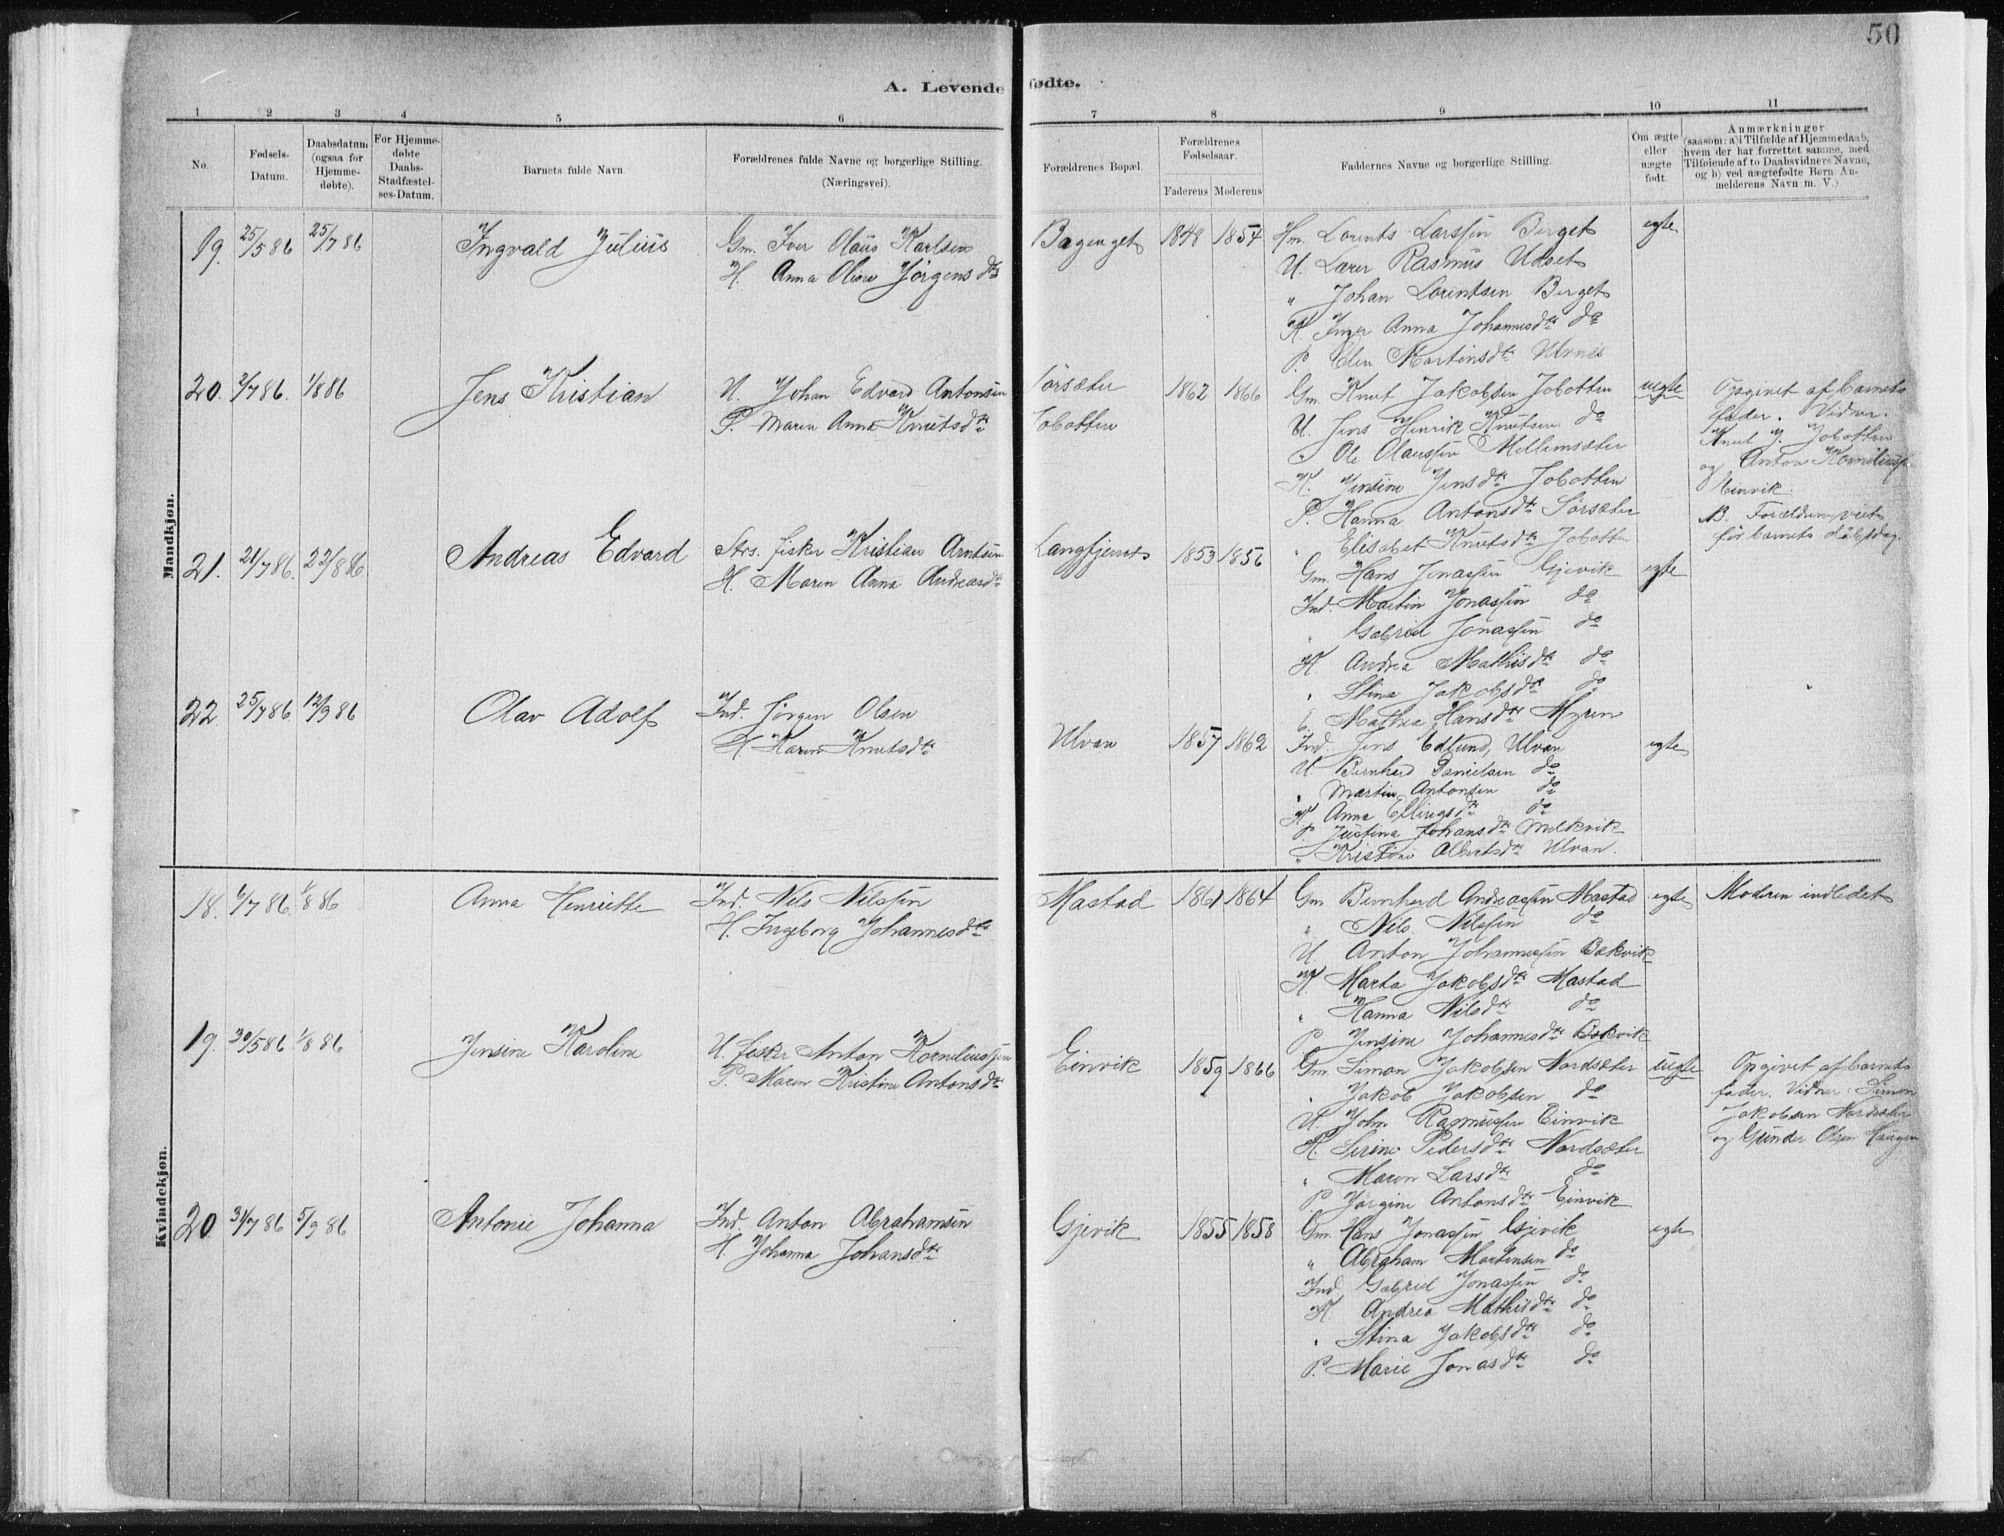 50
A. Levendefødte.
1 2 3 4 5 6 7 8 9 10 11
No.
Fødsels-Datum.
Daabsdatum (ogsaa for Hjemmedøbte).
For Hjemmedøbte Daabs-Stadfæstelses-Datum.
Barnets fulde Navn.
Forældrenes fulde Navne og borgerlige Stilling.
(Næringsvei).
Forældrenes Bopæl.
Forældrenes Fødselsaar.
Faderens Moderens
Faddernes Navne og borgerlige Stilling.
Om ægte eller uægte født.
Anmærkninger
(saasom: a) i Tilfælde af Hjemmedaab,
hvem der har forrettet samme, med
Tilføiende af to Daabsvidners Navne,
og b) ved uægtefødte Børn Anmelderens Navn m. V.)
Mandkjøn.
19. 25/5 86 25/7 86 Ingvald Julius Gm. Iver Olaus Karlsen
H. Anna Oline Jörgensdtr
1848 1854 Gm. Lorents Larssen Berget egte
U. Rasmus
" Johan Lorentsen Berget
K. Inger Anna Johannesdtr do
P. Elen Martinsdtr Ulvnes
20. 2/7 86. 1/8 86 Jens Kristian U. Johan Edvard Antonsen
P. Maren Anna Knutsdtr
Sörsæter
Jobotten
1862 1866 Gm. Knut Jakobsen Jobotten uegte
U. Jens Henrik Knutsen do
" Ole Olaussen Mellemsæter
K. Jensine Jensdtr Jobotten
P. Hanna Antonsdtr Sörsæter
" Elisabet Knutsdtr Jobotten
Opgivet af barnets
fader. Vidner.
Knut J. Jobotten
og Anton Korneliussen
Einvik.
NB. Forældrene viet
før barnets dåbsdag.
21. 21/7 86. 22/8 86. Andreas Edvard Strs. fisker Kristian Arntsen
H. Maren Anna Andreasdtr
Langfjernes 1853 1856
Gm. Hans Jonassen Gjevik egte
Ind. Martin Jonassen do
" Gabriel Jonassen do
K. Andrea Mathisdtr do
" Stina Jakobsdtr do
E. Mathea Hansdtr Myren
22. 25/7 86. 12/9 86 Olav Adolf Ind. Jörgen Olsen
H. Karen Knutsdtr
Ulvan 1857 1862 Ind. Jens Edlund, Ulvan egte
U. Bernhard Danielsen do
" Martin Antonsen do
K. Anna Ellingsdtr do
P. Justina Johansdtr Melkvik
" Kristine Albertsdtr Ulvan.
Kvindekjøn.
18. 6/7 86. 1/8 86 Anna Henriette Ind. Nils Nilssen
H. Ingeborg Johannesdtr
Mastad 1861 1864 Gm Bernhard Andreassen Mastad egte Moderen indledet
" Nils Nilssen do
U. Anton Johannessen Bekvik
K. Marta Jakobsdtr Mastad
" Hanna Nilsdtr do
P. Jensine Johannesdtr Bekvik
19. 30/5 86 1/8 86 Jensine Karoline U. fisker Anton Korneliussen
P. Maren Kristine Antonsdtr
Einvik 1859 1866 Gm. Simon Jakobsen Nordsæter uegte
" Jakob Jakobsen do
U. John Rasmussen Einvik
K. Serine Pedersdtr Nordsæter
" Maren Larsdtr do
P. Jörgine Antonsdtr Einvik
Opgivet af barnets
fader. Vidner: Simon
Jakobsen Nordsæter
og Gunder Olsen Haugen
20 31/7 86 5/9 86 Antonie Johanna Ind. Anton Abrahamsen
H. Johanna Johansdtr
Gjevik 1855 1858 Gm. Hans Jonassen Gjevik egte
" Abraham Mortensen do
Ind. Gabriel Jonassen do
K. Andrea Mathisdtr do
" Stina Jakobsdtr do
P. Marie Jonasdtr do